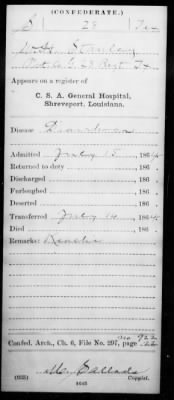 (CONFEDERATE.)
S 28 Tex
Pvt Co. G. 28 Regt Tx
Appears on a register of
C. S. A. General Hospital,
Shreveport, Louisiana.
Disease
Admitted July 15, 1864
Returned to duty , 186 .
Discharged , 186 .
Furloughed , 186 .
Deserted , 186 .
Transferred July 16, 1864
Died , 186 .
Remarks:
Confed. Arch., Ch. 6, File No. 297, page
(635) Copyist.